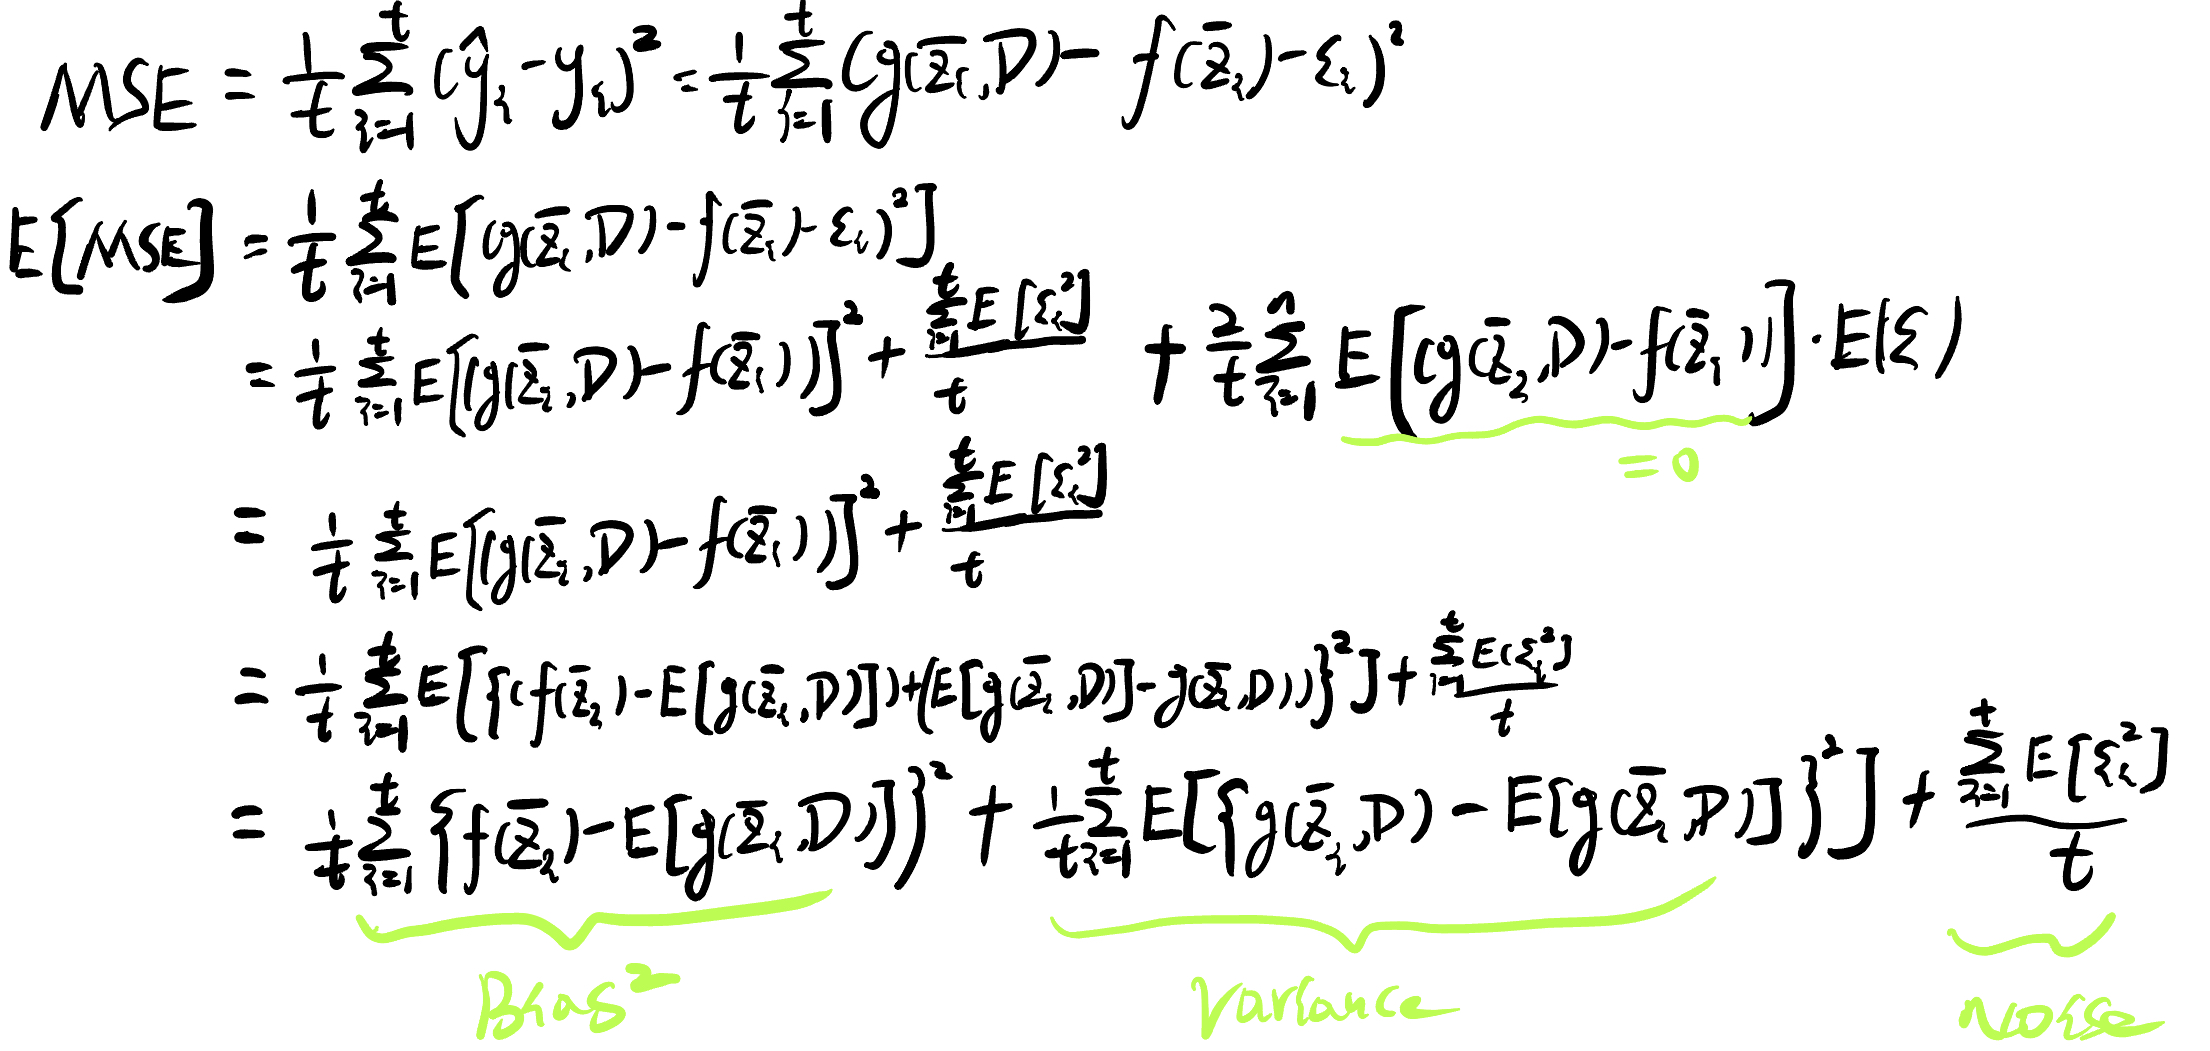 MSE = 1/t Σ_{i=1}^{t} (ŷ_i - y_i)² = 1/t Σ_{i=1}^{t} (g(z̄_i, D) - f(z̄_i) - ε_i)²
E[MSE] = 1/t Σ_{i=1}^{t} E[(g(z̄_i, D) - f(z̄_i) - ε_i)²]
= 1/t Σ_{i=1}^{t} E[(g(z̄_i, D) - f(z̄_i))]² + Σ_{i=1}^{t} E[ε_i²] / t + 2/t Σ_{i=1}^{n} E[(g(z̄_i, D) - f(z̄_i))] · E(ε)
= 0
= 1/t Σ_{i=1}^{t} E[(g(z̄_i, D) - f(z̄_i))]² + Σ_{i=1}^{t} E[ε_i²] / t
= 1/t Σ_{i=1}^{t} E[{(f(z̄_i) - E[g(z̄_i, D)]) + (E[g(z̄_i, D)] - g(z̄_i, D))}²] + Σ_{i=1}^{t} E(ε_i²] / t
= 1/t Σ_{i=1}^{t} {f(z̄_i) - E[g(z̄_i, D)]}² + 1/t Σ_{i=1}^{t} E[{g(z̄_i, D) - E[g(z̄_i, D)]}²] + Σ_{i=1}^{t} E[ε_i²] / t
Bias² Variance Noise